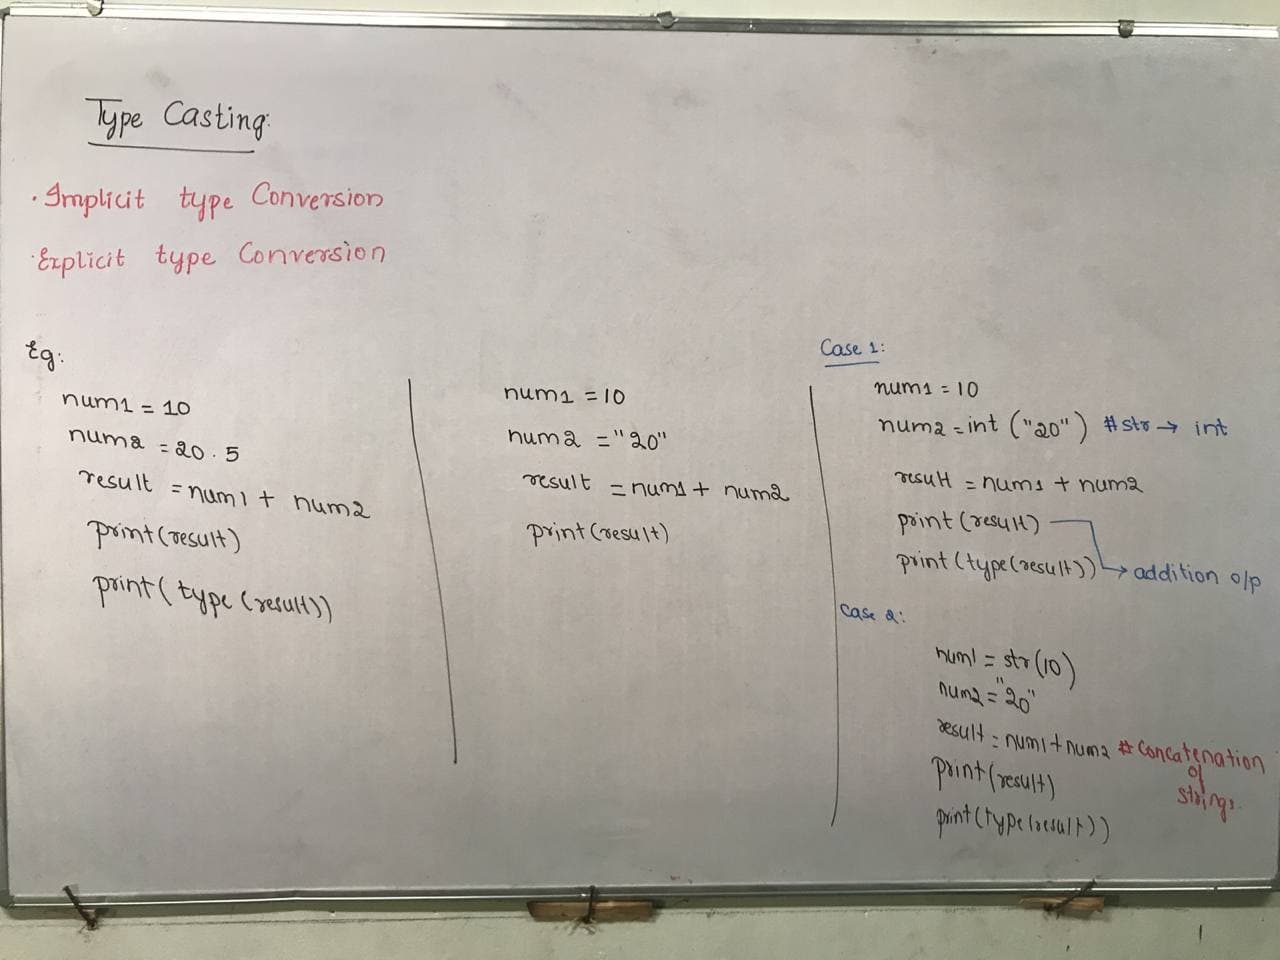 Type Casting:
· Implicit type Conversion
· Explicit type Conversion
Eg:
num1 = 10
num2 = 20.5
result = num1 + num2
print(result)
print(type(result))
num1 = 10
num2 = "20"
result = num1 + num2
print(result)
Case 1:
num1 = 10
num2 = int ("20") #str → int
result = num1 + num2
print(result)
print(type(result)) → addition o/p
Case 2:
num1 = str(10)
num2 = "20"
result = num1 + num2 # Concatenation
of
strings.
print(result)
print(type(result))